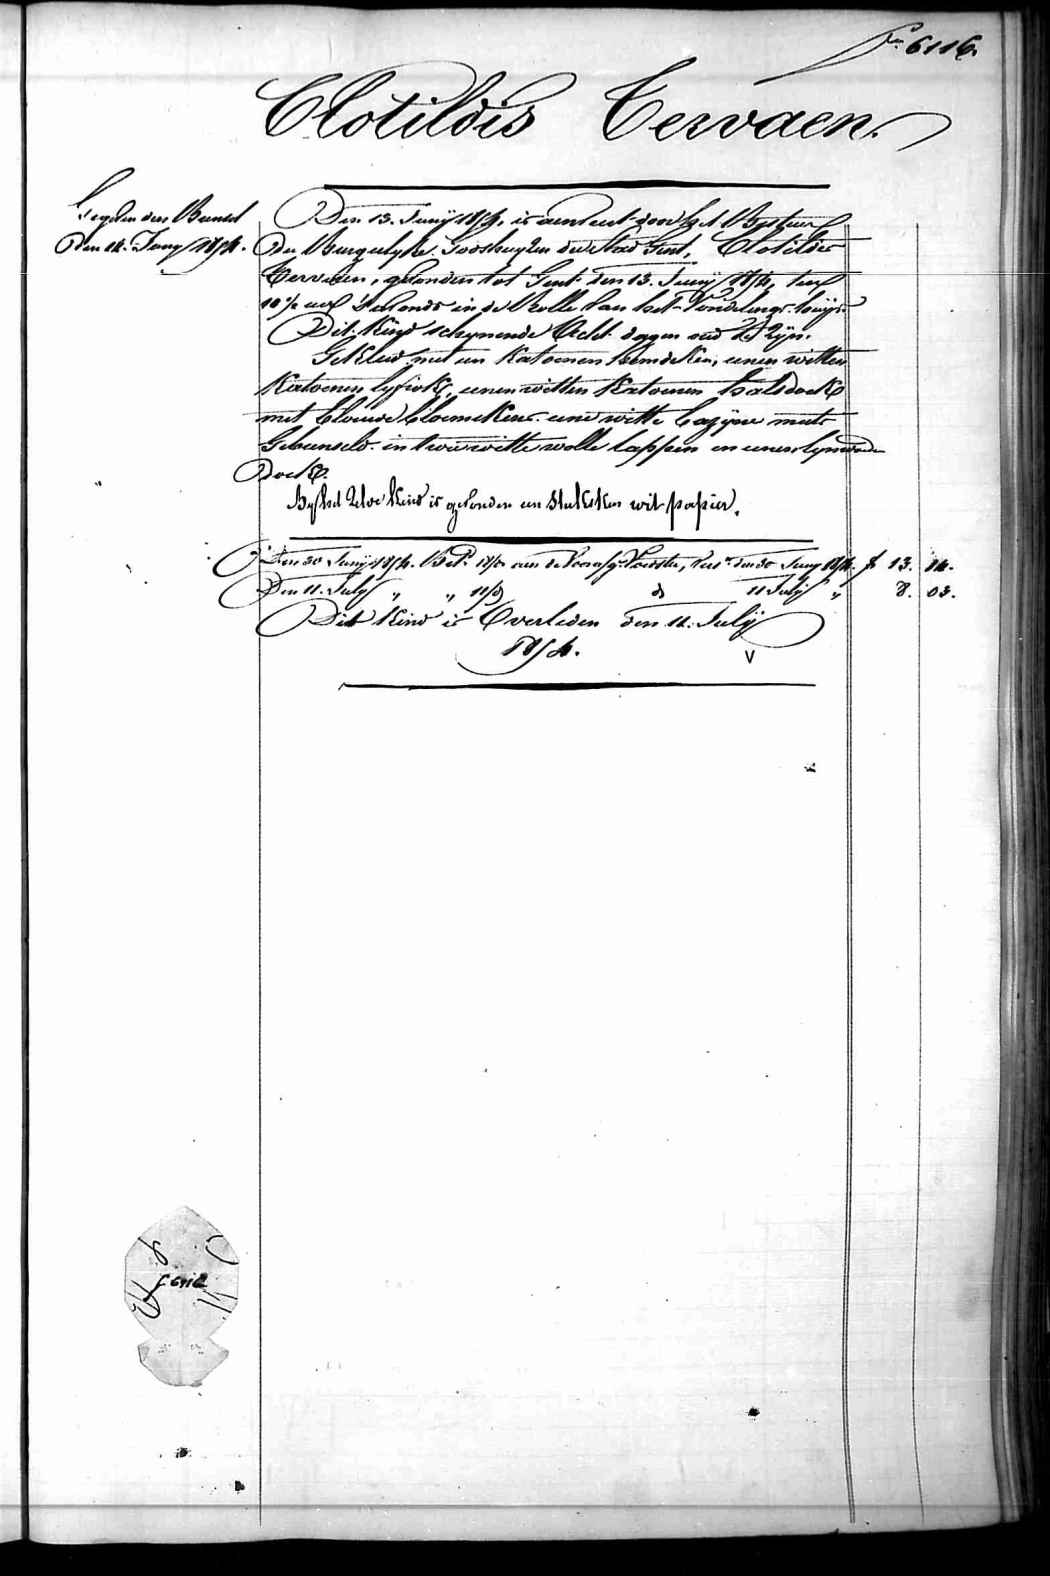 f.° 6116.
Clotildis Tervaen.
Den 13. Junij 1854, is aenveert door het Bestuer
Der Burgerlyke Godshuyzen der Stad Gent, Clotildis
Tervaen, gevonden tot Gent den 13. Junij 1854, ten
10 ½ ure 's avonds in de Rolle van het Vondelings-huijs.
Dit Kind schynende Acht dagen oud te Zyn.
Gekleed met een Katoenen hemdeken, eenen witten
Katoenen lyfrok, eenen witten Katoenen halsdoek
met blauwe bloemekens eene witte bazyne muts
Gebunseld in twee witte wolle lappen en eenen lynwaden
Doek.
By het Zelve Kind is gevonden een Stuksken wit papier.
den Bunsel
Den 14. Junij 1854.
Den 30 Junij 1854. Bet. aen de Voedster, den 30 Junij 1854 f 13. 14.
Den 11. July " " 11 July " 8. 03.
Dit Kind is Overleden den 11. Julij
1854.
V